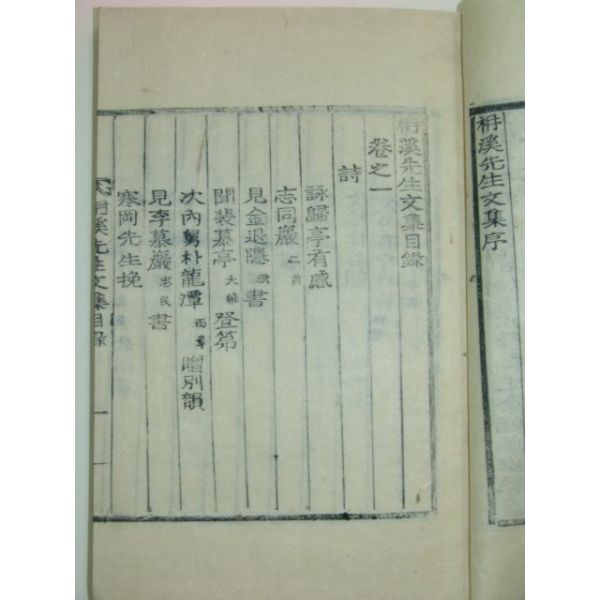 枏溪先生文集序
枏溪先生文集目錄
卷之一
詩
詠歸亭有感
志同巖二首
見金退隱書
聞裴慕亭大維登第
次內舅朴龍潭贈別韻
見李慕巖忠民書
寒岡先生挽
枏溪先生文集目錄 一